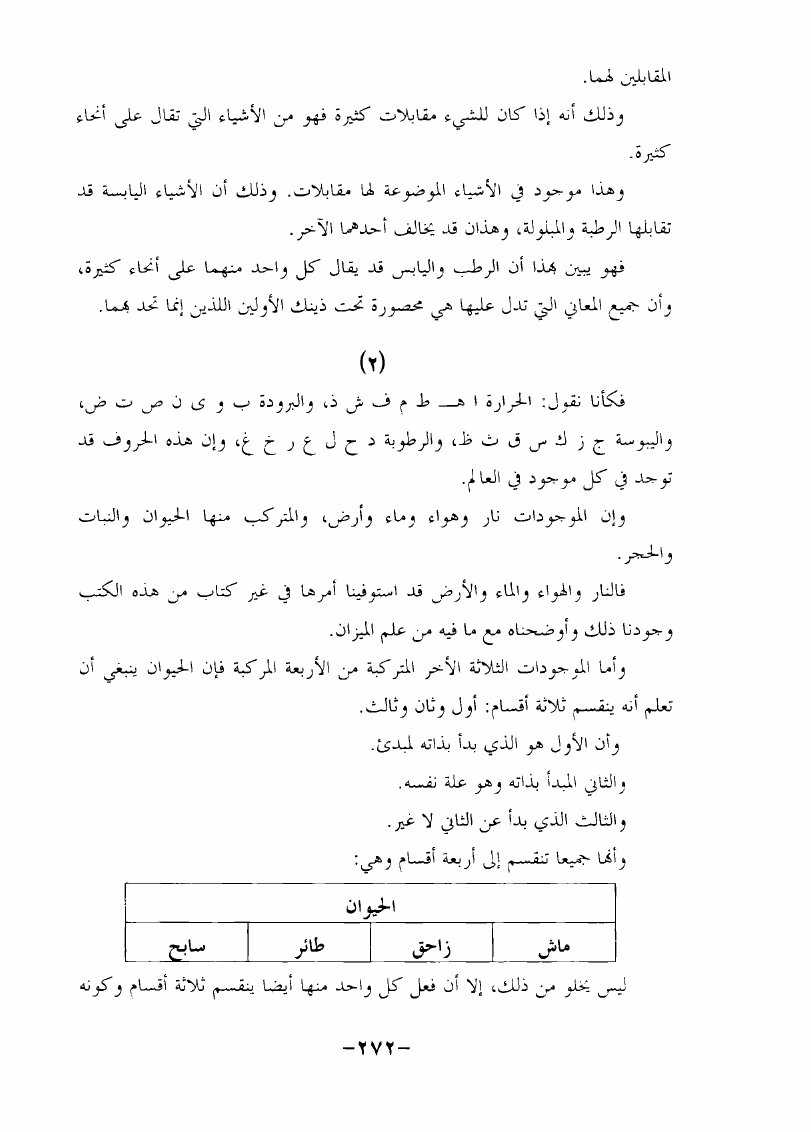 المقابلين لهما.
وذلك أنه إذا كان للشيء مقابلات كثيرة فهو من الأشياء التي تقال على أنحاء
كثيرة.
وهذا موجود في الأشياء الموضوعة لها مقابلات. وذلك أن الأشياء اليابسة قد
تقابلها الرطبة والمبلولة، وهذان قد يخالف أحدهما الآخر.
فهو يبين بهذا أن الرطب واليابس قد يقال كل واحد منهما على أنحاء كثيرة،
وأن جميع المعاني التي تدل عليها هي محصورة تحت ذينك الأولين اللذين إنما تحد بهما.
(٢)
فكأنا نقول: الحرارة ا هـــ ط م ف ش ذ، والبرودة ب و ى ن ص ت ض،
واليبوسة ج ز ك س ق ث ظ، والرطوبة د ح ل ع ر خ غ، وإن هذه الحروف قد
توجد في كل موجود في العالم.
وإن الموجودات نار وهواء وماء وأرض، والمتركب منها الحيوان والنبات
والحجر.
فالنار والهواء والماء والأرض قد استوفينا أمرها في غير كتاب من هذه الكتب
وجودنا ذلك وأوضحناه مع ما فيه من علم الميزان.
وأما الموجودات الثلاثة الأخر المتركبة من الأربعة المركبة فإن الحيوان ينبغي أن
تعلم أنه ينقسم ثلاثة أقسام: أول وثان وثالث.
وأن الأول هو الذي بدأ بذاته لمبدئ.
والثاني المبدأ بذاته وهو علة نفسه.
والثالث الذي بدأ عن الثاني لا غير.
وأنها جميعا تنقسم إلى أربعة أقسام وهي:
الحيوان
ماش زاحق طائر سابح
ليس يخلو من ذلك، إلا أن فعل كل واحد منها أيضا ينقسم ثلاثة أقسام وكونه
-٢٧٢-